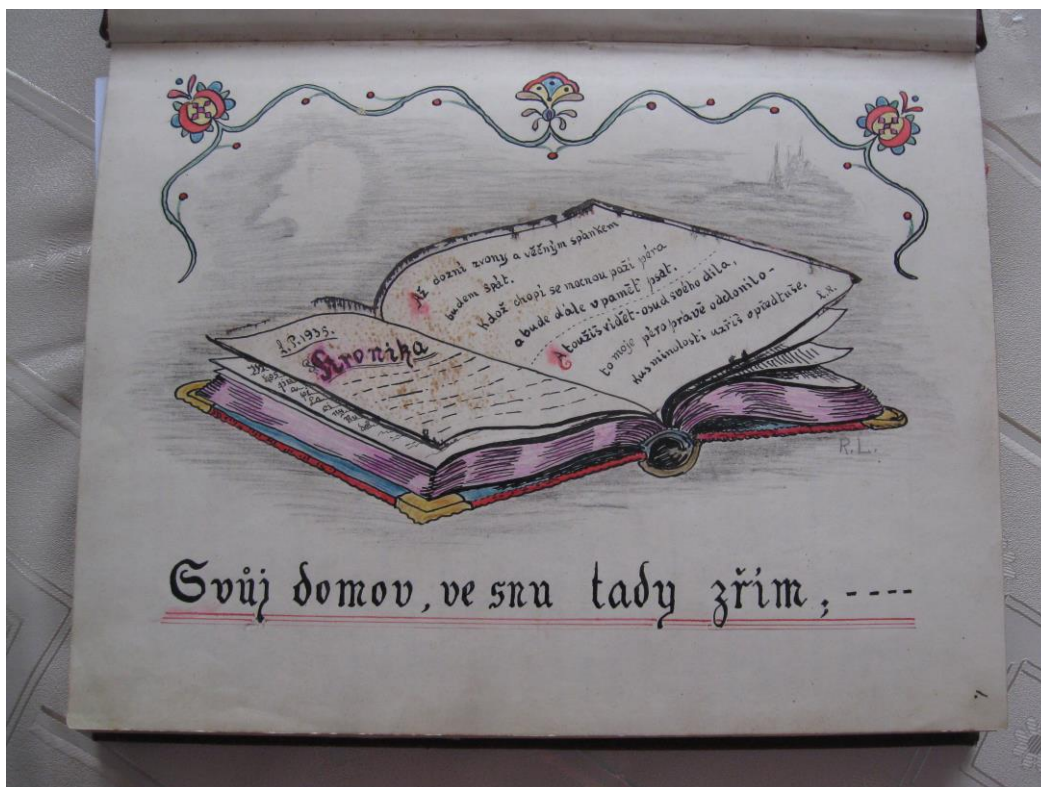 L.P. 1935.
Kronika
Až dozní zvony a věčným spánkem
budem spát.
Kdož chopí se mocnou paží péra
a bude ďále v paměť psát.
A toužíš vidět - osud svého díla,
to moje péro právě odclonilo -
kus minulosti uzříš opředtuše.
L.R.
R.L.
Svůj domov, ve snu tady zřím, ----